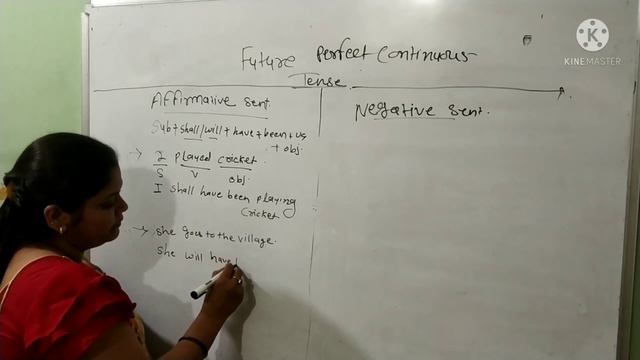 Future Perfect Continuous
Tense
Affirmative sent.
Sub + shall/will + have + been +
+ obj.
→ I played cricket.
S V obj.
I shall have been playing
cricket
→ she goes to the village.
She will have
Negative sent.
KINEMASTER